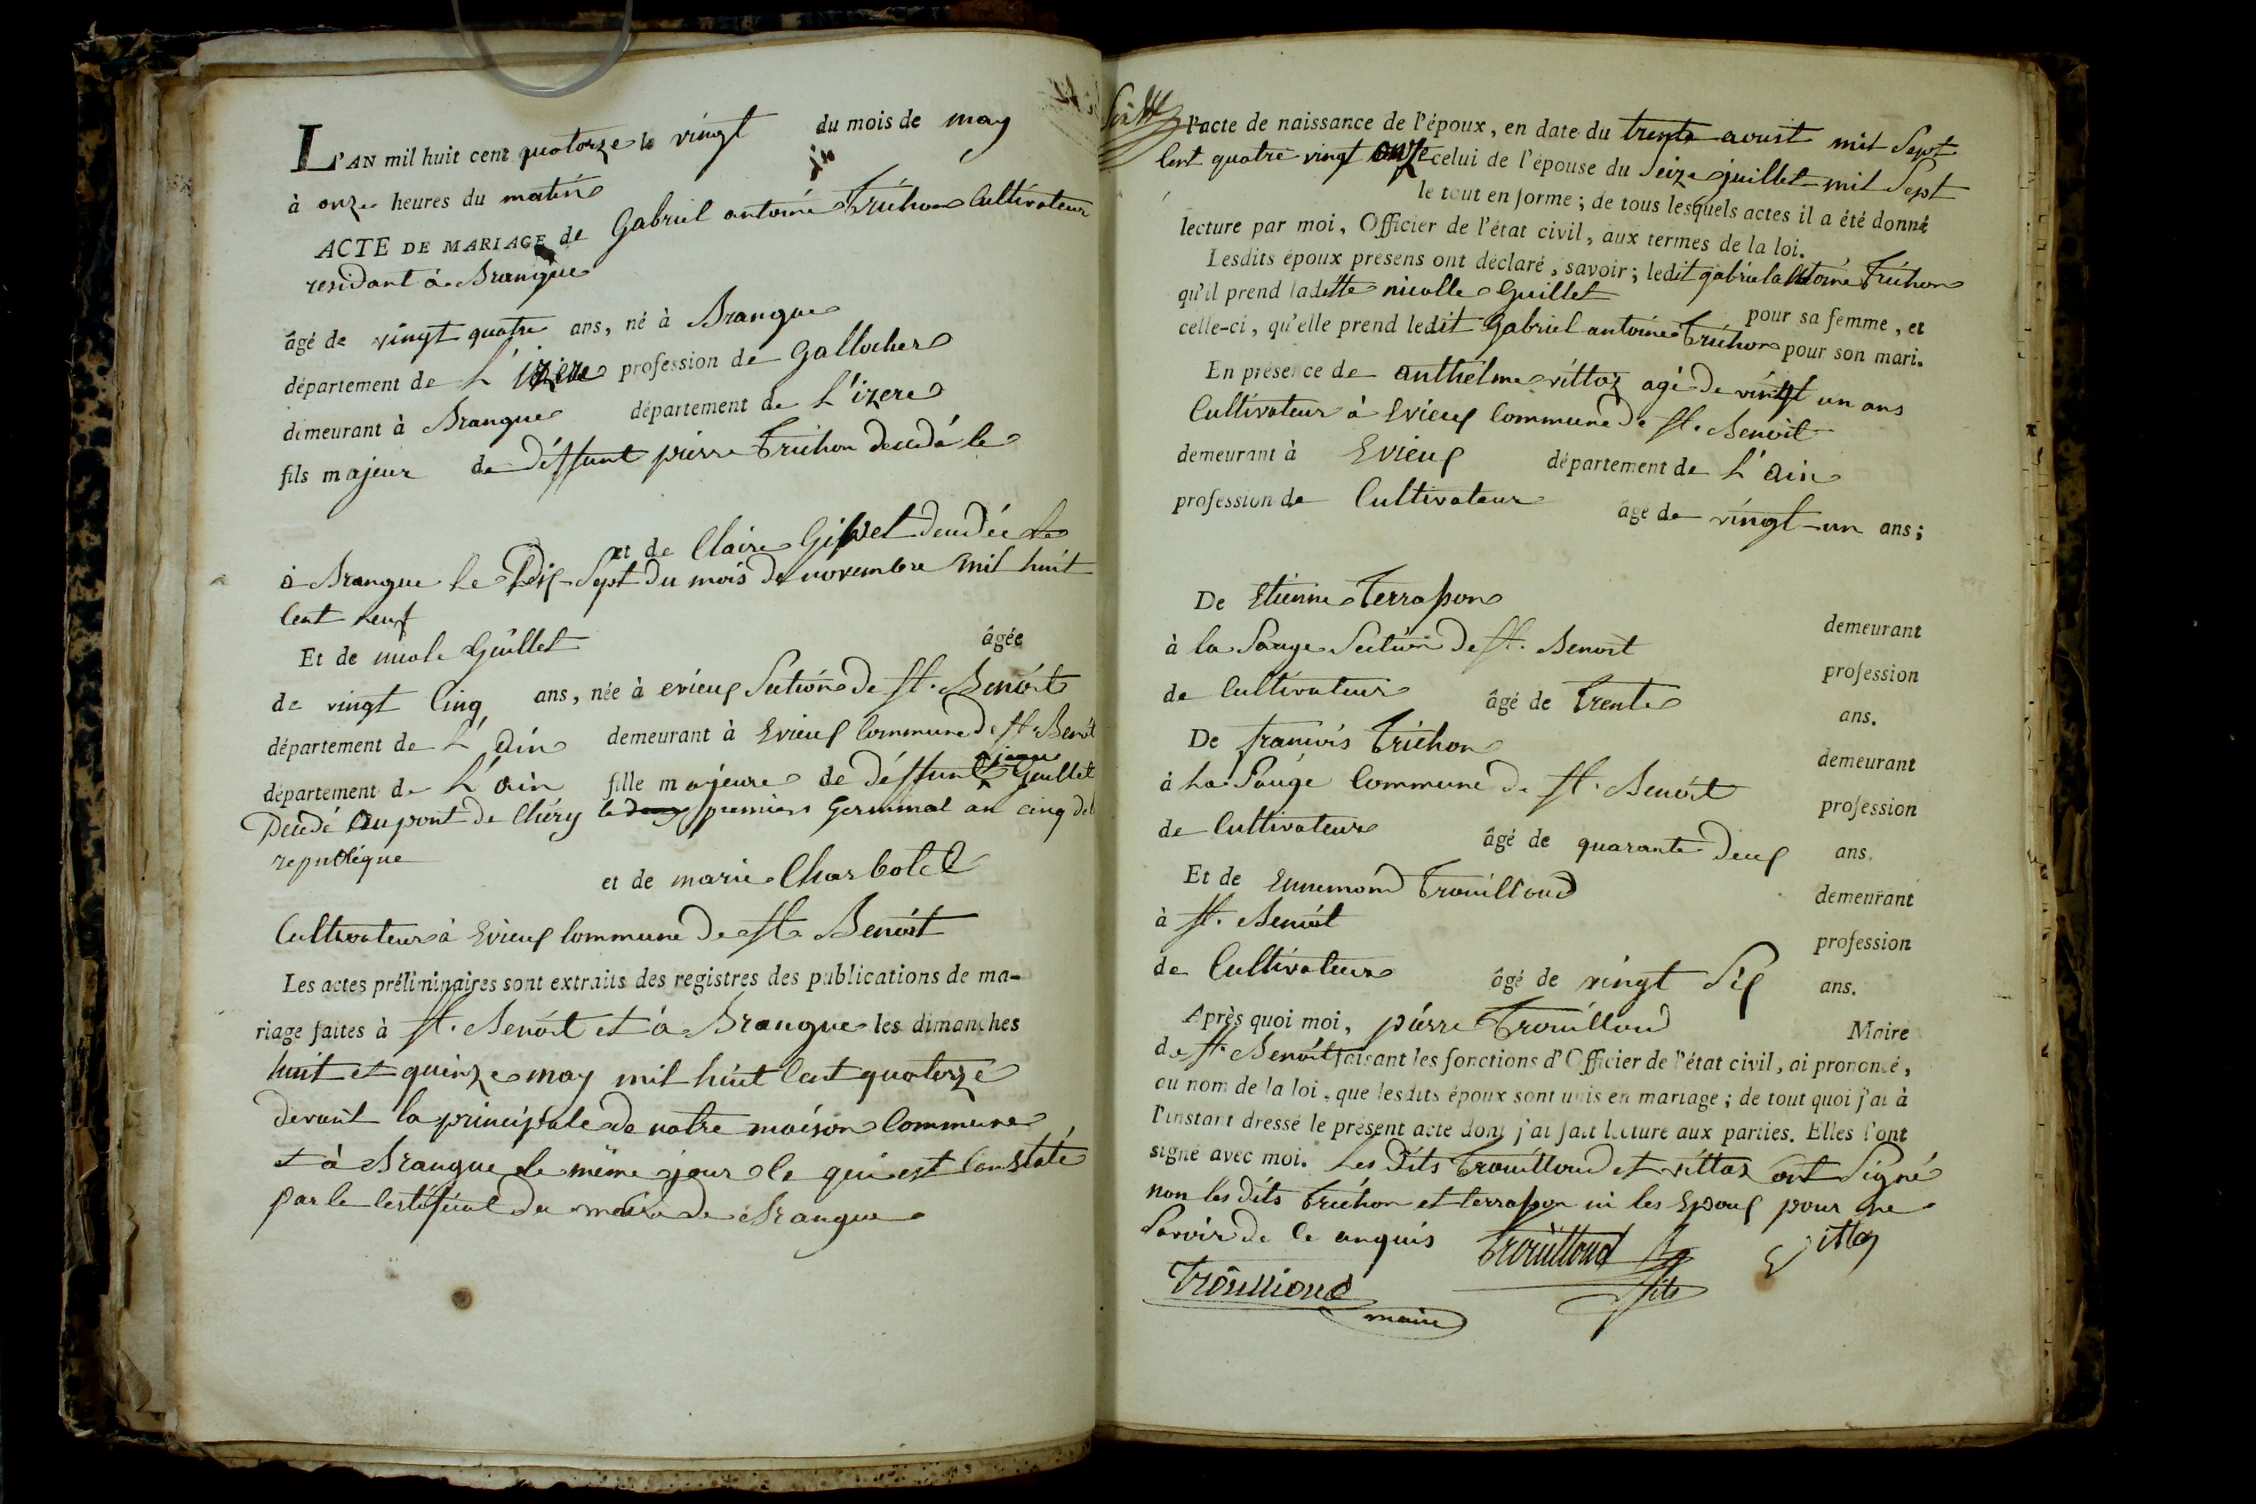 L'AN mil huit cent quatorze le vingt du mois de may
à onze heures du matin
ACTE DE MARIAGE de Gabriel antoine Trichon Cultivateur
residant à Brangue
âgé de vingt quatre ans, né à Brangue
département de L'izere profession de Gallocher
demeurant à Brangue département de L'izere
fils majeur de déffunt pierre Trichon decedé le
et de Claire decedée
à Brangue le Dix Sept du mois de novembre mil huit
Cent neuf
Et de nicole Guillet âgée
de vingt Cinq ans, née à evieux Section de St. Benoit
département de L'ain demeurant à Evieux Commune de St Benoit
département de L'ain fille majeure de déffunt Guillet
Decedé au pont de Chéry le premier Germinal an cinq de
republique
et de marie Charbotel
Cultivateur à Evieux Commune de St Benoit
Les actes préliminaires sont extraits des registres des publications de ma-
riage faites à St. Benoit et à Brangue les dimanches
huit et quinze may mil huit Cent quatorze
devant la principale de notre maison Commune
et à Brangue le même jour Ce qui est Constaté
par le Certificat du maire de Brangue
l'acte de naissance de l'époux, en date du trente aoust mil Sept
Cent quatre vingt onze celui de l'épouse du Seize juillet mil Sept
le tout en forme ; de tous lesquels actes il a été donné
lecture par moi, Officier de l'état civil, aux termes de la loi.
Lesdits époux présens ont déclaré, savoir ; ledit gabriel antoine Trichon
qu'il prend laditte nicolle Guillet pour sa femme, et
celle-ci, qu'elle prend ledit Gabriel antoine Trichon pour son mari.
En présence de anthelme vittoz agé de vingt un ans
Cultivateur à Evieux Commune de St. Benoit
demeurant à Evieux département de L'ain
profession de Cultivateur âgé de vingt-un ans ;
De Etienne Terrasson demeurant
à la Sauge Section de St. Benoit profession
de Cultivateur âgé de Trente ans.
De francois Trichon demeurant
à La Sauge Commune de St. Benoit profession
de Cultivateur âgé de quarante Deux ans.
Et de Ennemond Trouilloud demeurant
à St. Benoit profession
de Cultivateur âgé de vingt Six ans.
Après quoi moi, pierre Trouilloud Maire
de St. Benoit faisant les fonctions d'Officier de l'état civil, ai prononcé,
au nom de la loi, que lesdits époux sont unis en mariage ; de tout quoi j'ai à
l'instant dressé le présent acte dont j'ai fait lecture aux parties. Elles l'ont
signé avec moi. Les dits Trouilloud et vittoz ont Signé
non les dits Trichon et terrasson ni les Epoux pour ne
Savoir de Ce enquis Trouilloud fils Vittoz
Trouilloud maire